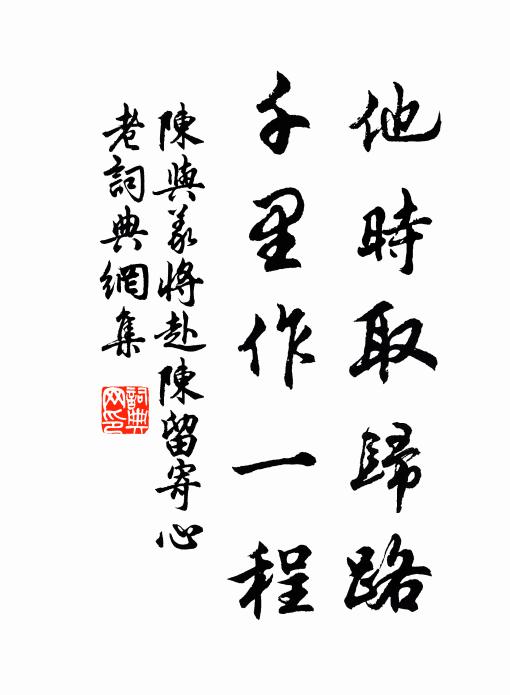 他時取歸路
千里作一程
陳與義將赴陳留寄心
老詞典網集
詞典
网印